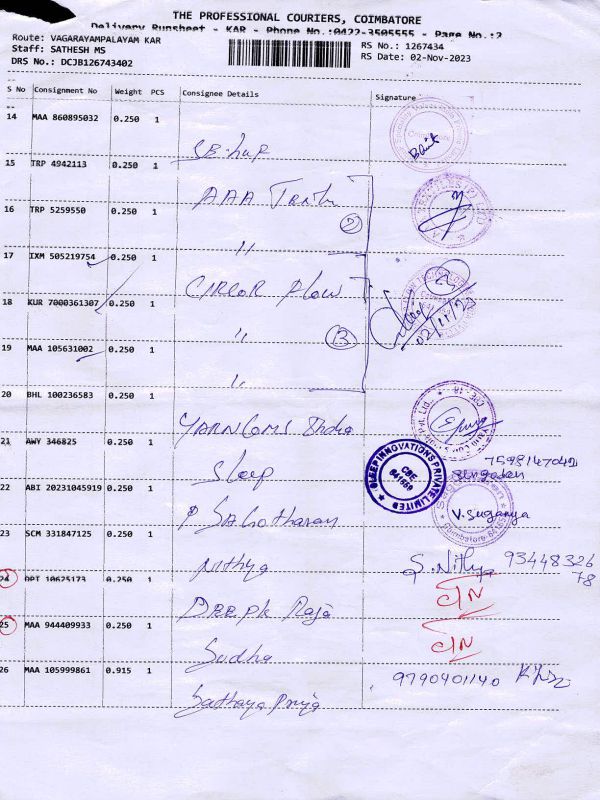 THE PROFESSIONAL COURIERS, COIMBATORE
Delivery Runsheet - KAR - Phone No.:0422-3505555 - Page No.:2
Route: VAGARAYAMPALAYAM KAR
Staff: SATHESH MS
DRS No.: DCJB126743402
RS No.: 1267434
RS Date: 02-Nov-2023
S No Consignment No Weight PCS Consignee Details Signature
14 MAA 860895032 0.250 1
15 TRP 4942113 0.250 1
AAA
16 TRP 5259550 0.250 1
2
"
17 IXM 505219754 0.250 1
CIRCOR Flow
18 KUR 7000361307 0.250 1
" 13
02/11/23
19 MAA 105631002 0.250 1
"
20 BHL 100236583 0.250 1
YARNCOMS India
21 AWY 346825 0.250 1
Sleep
SLEEP INNOVATIONS PRIVATE LIMITED
CBE
641659
7598147042
22 ABI 20231045919 0.250 1
P Sahotharan
V. Suganya
23 SCM 331847125 0.250 1
Nithya
S. Nithya 93448326
78
24 DPT 10625173 0.250 1
Deepk Raja
25 MAA 944409933 0.250 1
Sudha
26 MAA 105999861 0.915 1
9790401140
Sathaya Priya